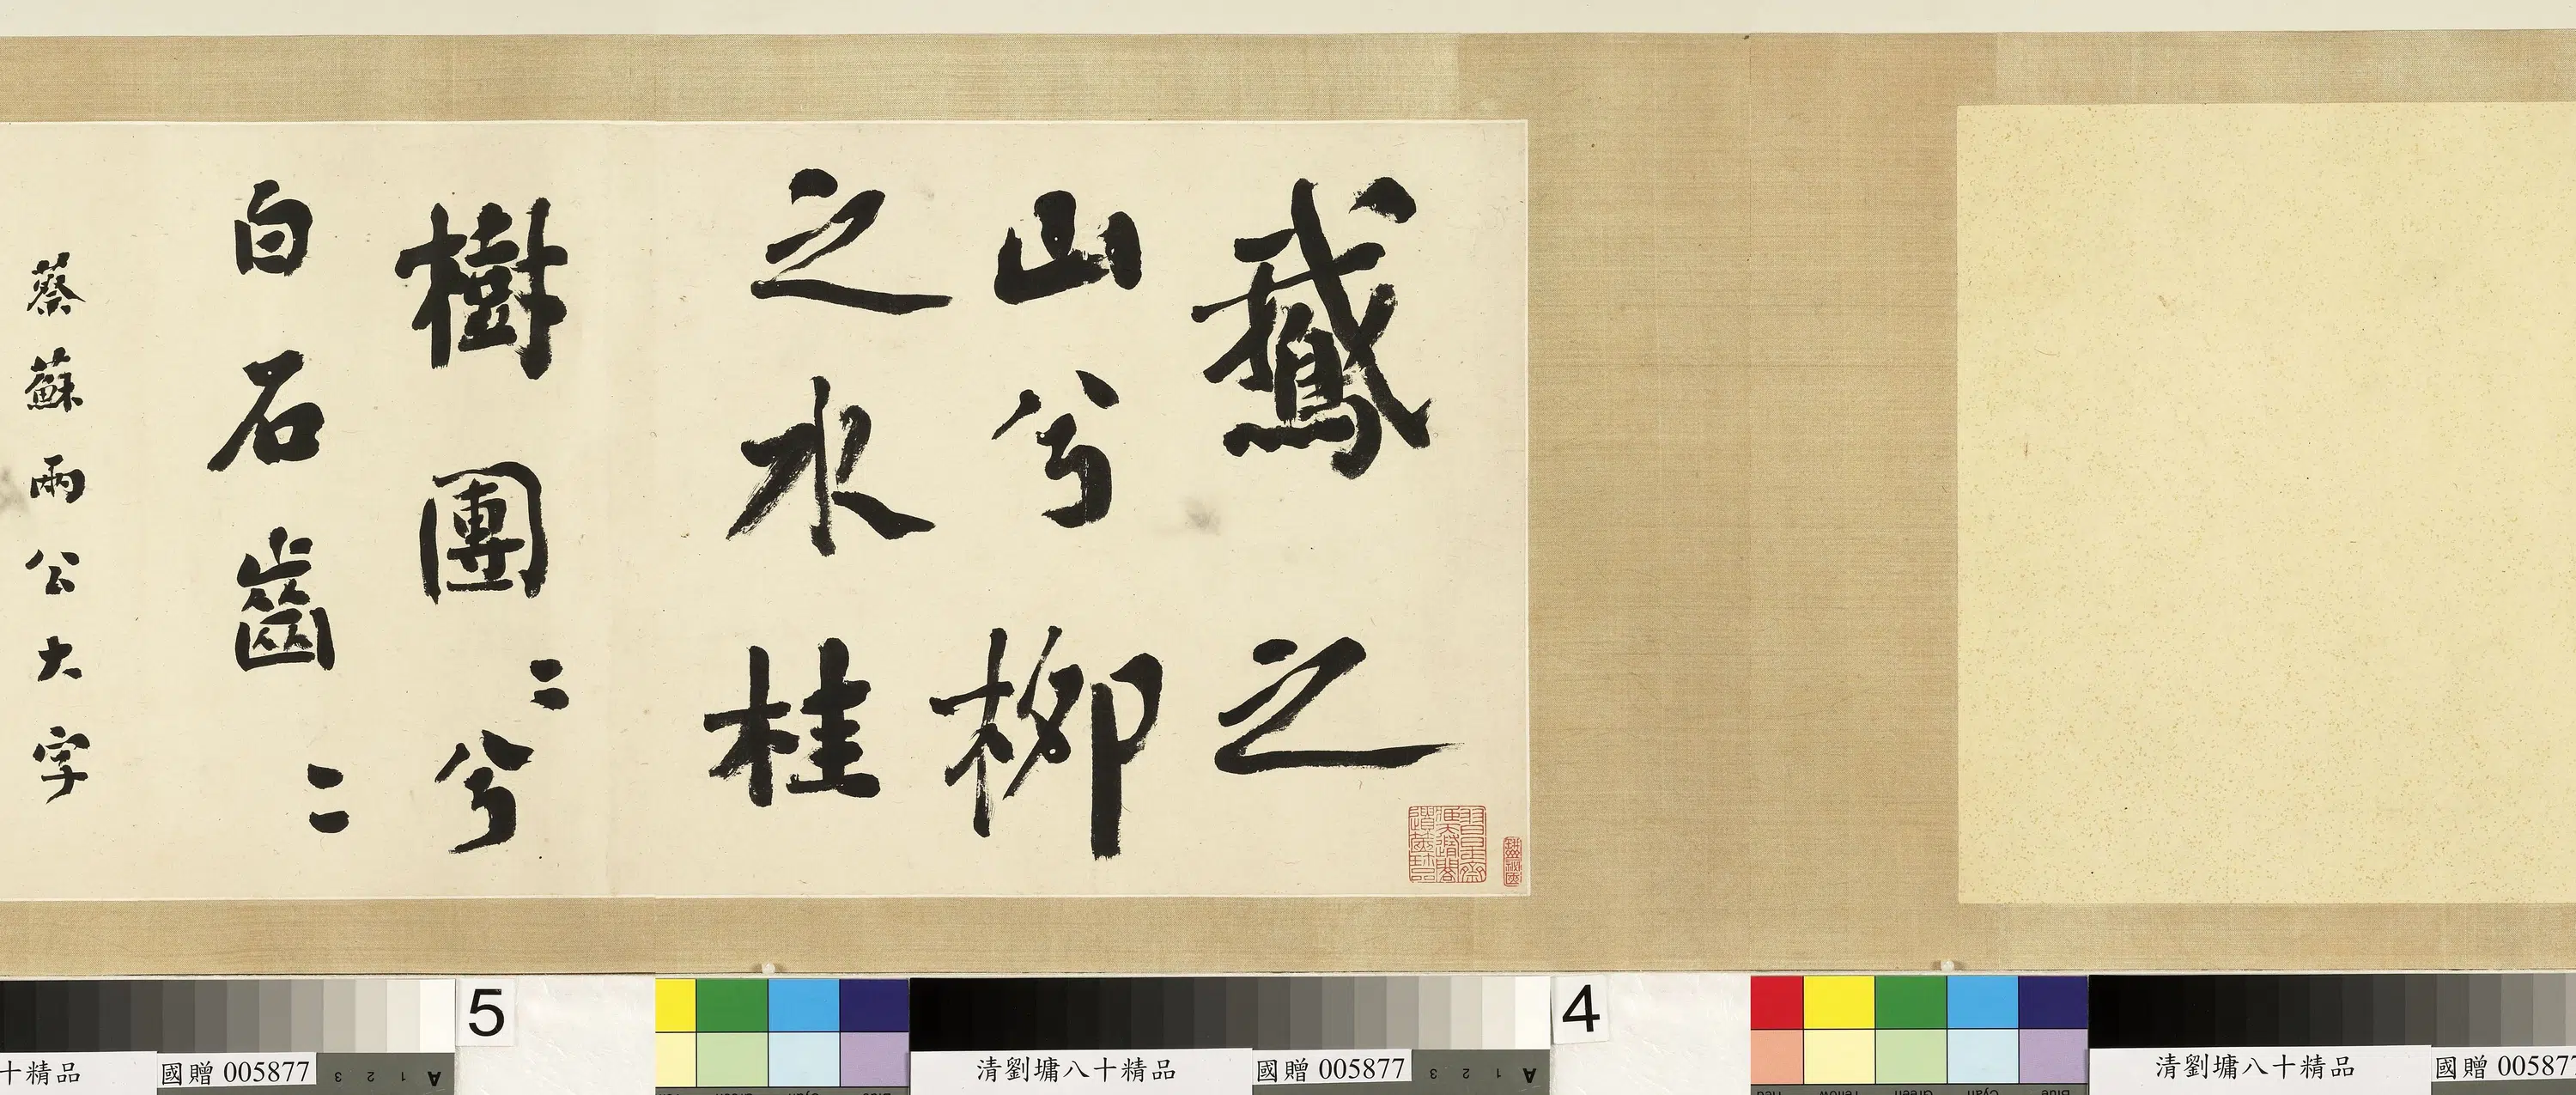 鵞之
山兮柳
之水桂
樹團〻兮
白石齒〻
蔡蘇兩公大字
5
4
十精品
國贈 005877
3 2 1 A
清劉墉八十精品
國贈 005877
3 2 1 A
清劉墉八十精品
國贈 005877